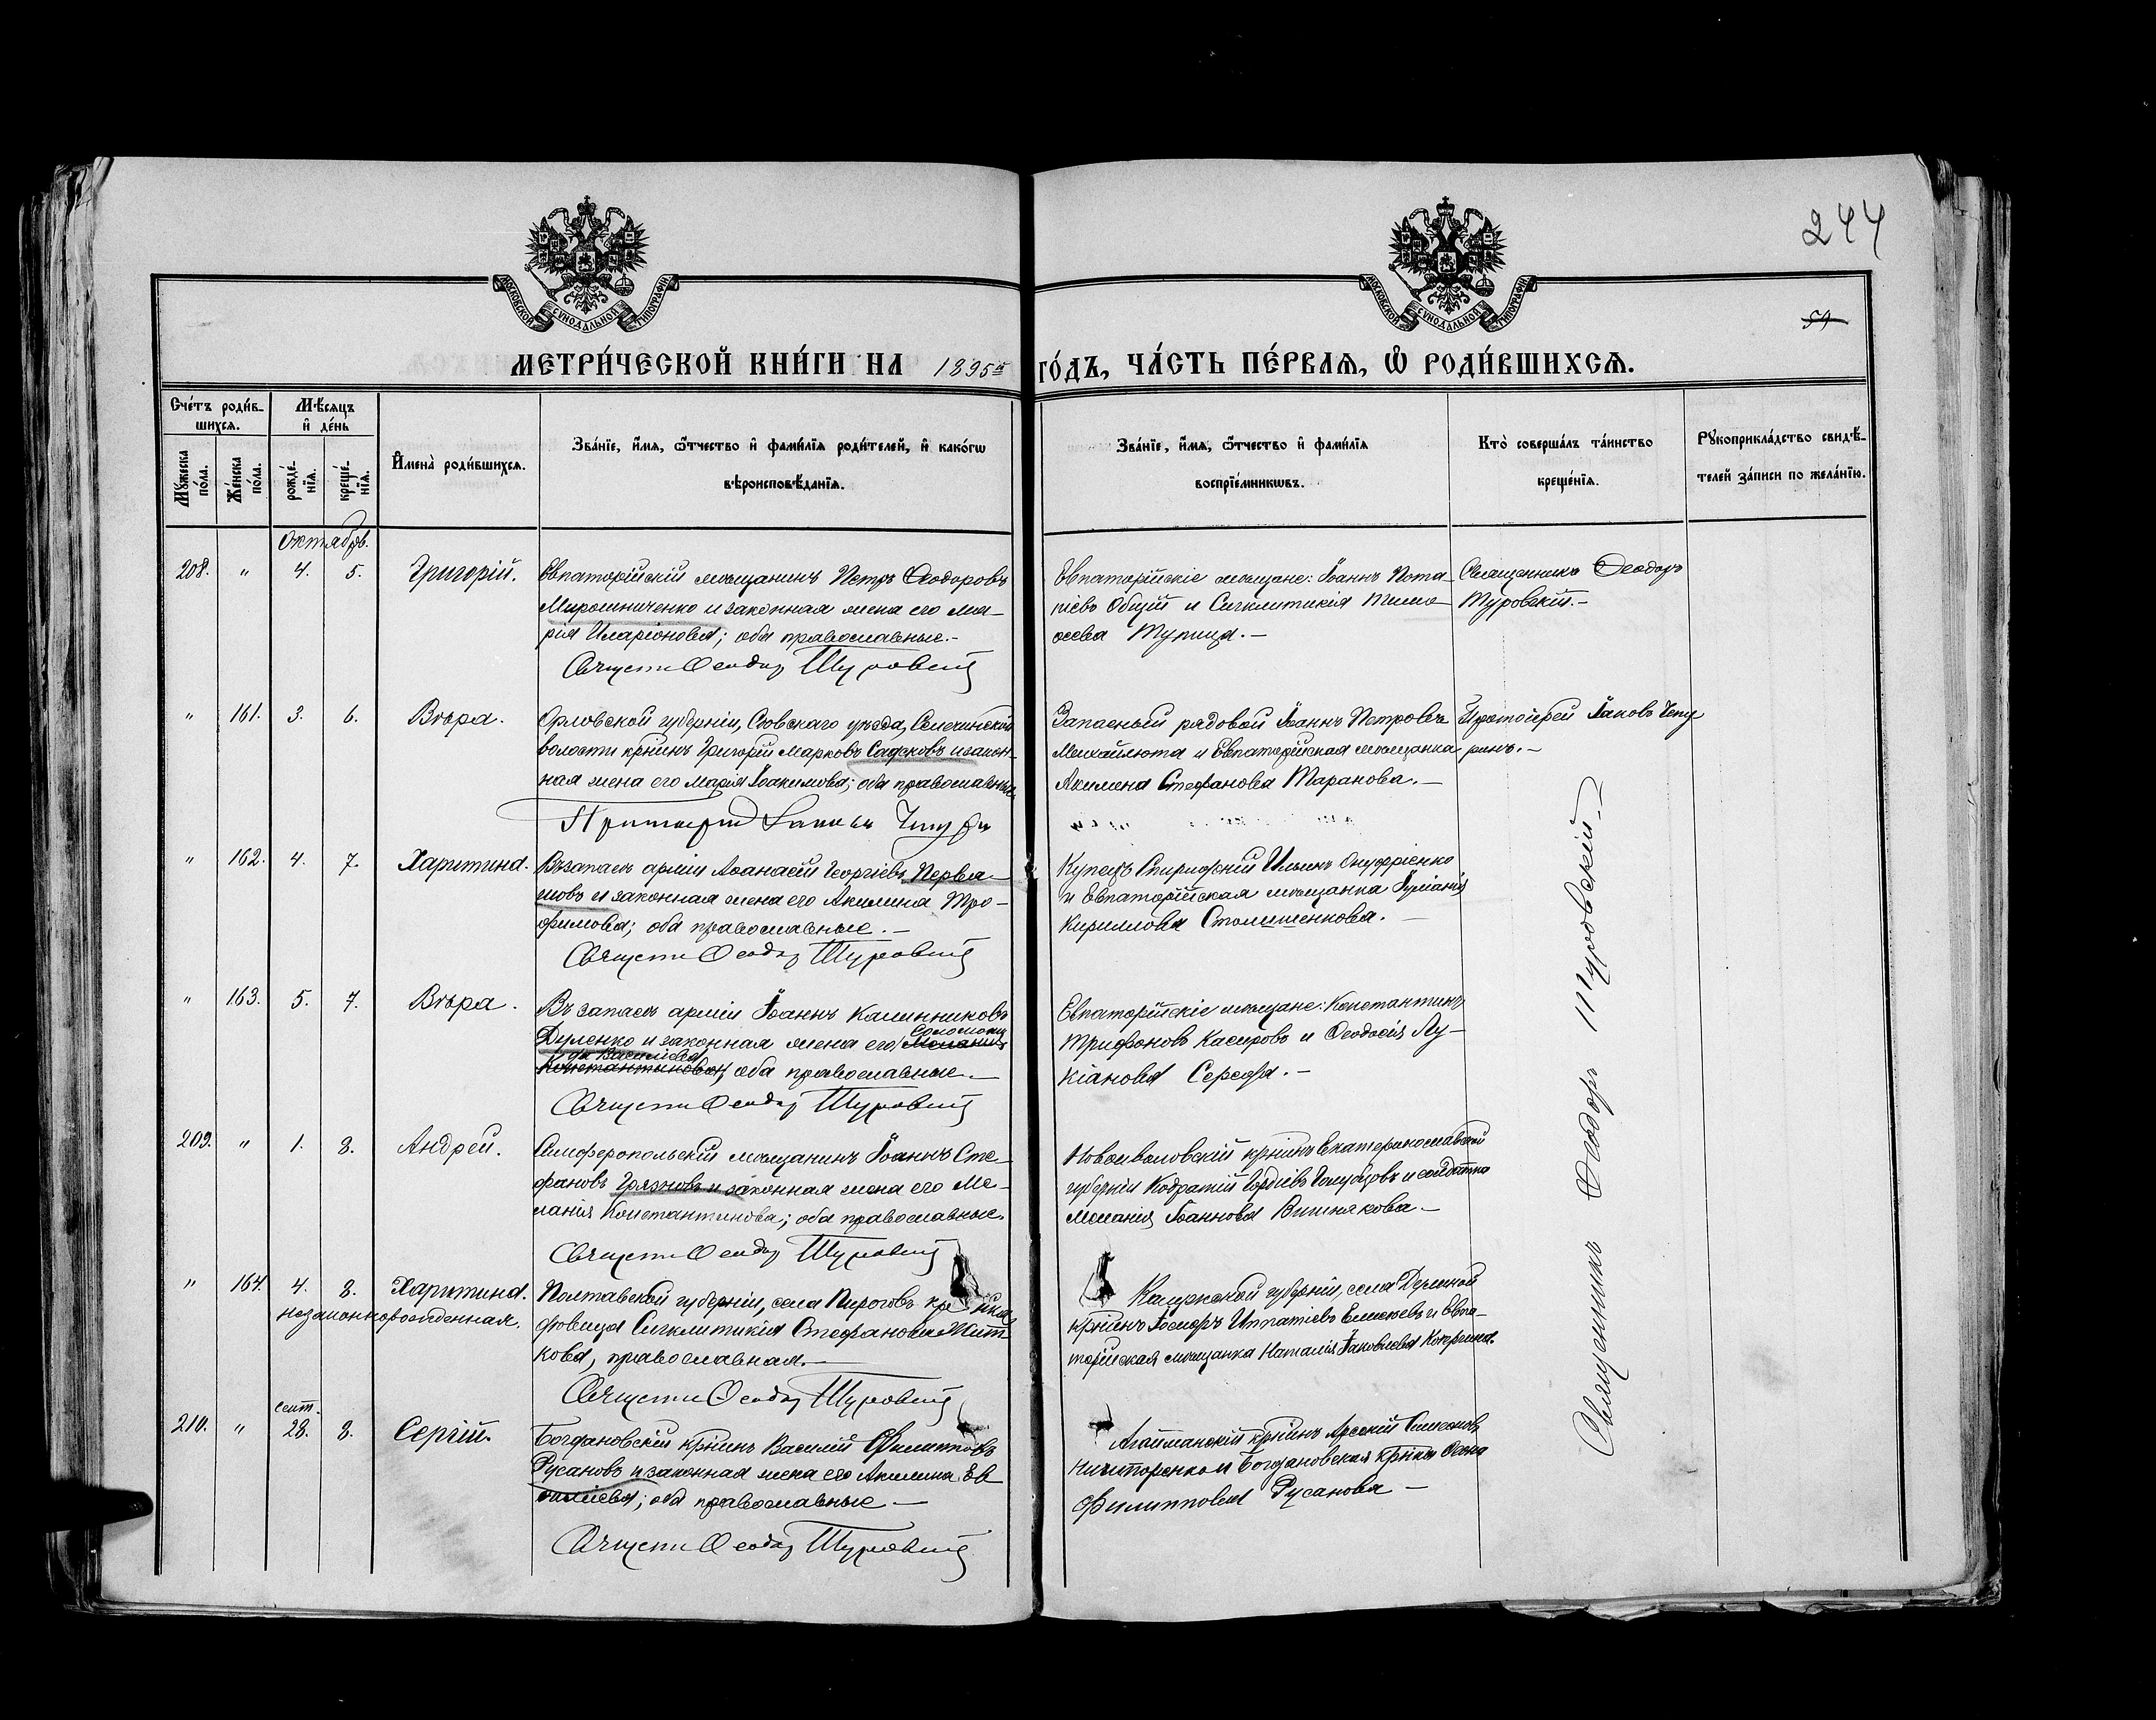 244
59
МОСКОВСКОЙ СУНОДАЛЬНОЙ ТИПОГРАФІИ
МОСКОВСКОЙ СУНОДАЛЬНОЙ ТИПОГРАФІИ
МЕТРИ́ЧЕСКОЙ КНИ́ГИ НА 1895й ГО́ДЪ, ЧА́СТЬ ПЕ́РВАѦ, Ѽ РОДИ́ВШИХСѦ.
Сче́тъ роди́в-
шихсѧ.
Мѣ́сѧцъ
и҆ де́нь
Мꙋ́жеска по́ла.
Же́нска по́ла.
рожде́-
нїѧ.
креще́-
нїѧ.
И҆мена̀ роди́вшихсѧ.
Зва́нїе, и҆́мѧ, ѻ҆́тчество и҆ фами́лїѧ роди́телей, и҆ како́гѡ
вѣроисповѣ́данїѧ.
Зва́нїе, и҆́мѧ, ѻ҆́тчество и҆ фами́лїѧ
воспрїе́мникѡвъ.
Кто̀ соверша́лъ та́инство
креще́нїѧ.
Рꙋкоприкла́дство свидѣ́-
телей за́писи по жела́нїю.
Октябрь.
208. " 4. 5. Григорій.
Евпаторійскій мѣщанинъ Петръ Ѳеодоровъ
Мирошниченко и законная жена его Ма-
рія Иларіонова; оба православные.-
Священ Ѳеодор Туровскій
Евпаторійскіе мѣщане: Іоаннъ Пота-
піевъ Общій и Сигклитикія Тимо-
ѳеева Тупица.-
Священникъ Ѳеодоръ
Туровскій.-
" 161. 3. 6. Вѣра.
Орловской губерніи, Сѣвскаго уѣзда,
волости крнинъ Григорій Марковъ и закон-
ная жена его Марія Іоакимова; оба православные
Протоіерей Іаковъ
Запасный рядовой Іоаннъ Петровъ
Михайлюта и Евпаторійская мѣщанка
Акилина Стефанова Таранова.-
Протоіерей Іаковъ Чепу
ринъ.-
" 162. 4. 7. Харитина.
Въ запасѣ арміи Аѳанасій Георгіевъ
и законная жена его Акилина Тро-
фимова; оба православные.-
Священ Ѳеодор Туровскій
Купецъ Спиридонъ Ильинъ Онуфріенко
и Евпаторійская мѣщанка Іуліанія
Кириллова.-
" 163. 5. 7. Вѣра.
Въ запасѣ арміи Іоаннъ Калинниковъ
Соломони
Дуленко и законная жена его Меланія
да Васильева
Константинова; оба православные.-
Священ Ѳеодор Туровскій
Евпаторійскіе мѣщане: Константинъ
Трифоновъ Касировъ и Ѳеодосія Лу-
кіанова Середа.-
209. " 1. 8. Андрей.
Симферопольскій мѣщанинъ Іоаннъ Сте-
фановъ Грязновъ и законная жена его Ме-
ланія Константинова; оба православные.
Священ Ѳеодор Туровскій
крнинъ Екатеринославской
губерніи Гордіевъ и солдатка
Меланія Іоаннова Вишнякова.-
" 164. 4. 8. Харитина.
незаконнорожденная.
Полтавской губерніи, села Пироговъ
дѣвица Сигклитикія Стефанова Жит-
кова, православная.-
Священ Ѳеодор Туровскій
Калужской губерніи, села
крнинъ Ипатіевъ и Евпа-
торійская мѣщанка Наталія Іаковлева
сент.
210. " 28. 8. Сергій.
Богдановскій крнинъ Василій Филипповъ
Русановъ и законная жена его Акилина Ев
оба православные -
Священ Ѳеодор Туровскій
Агайманскій крнинъ Арсеній Симеоновъ
Богдановская крнка
Филиппова Русанова -
Священникъ Ѳеодоръ Туровскій.-